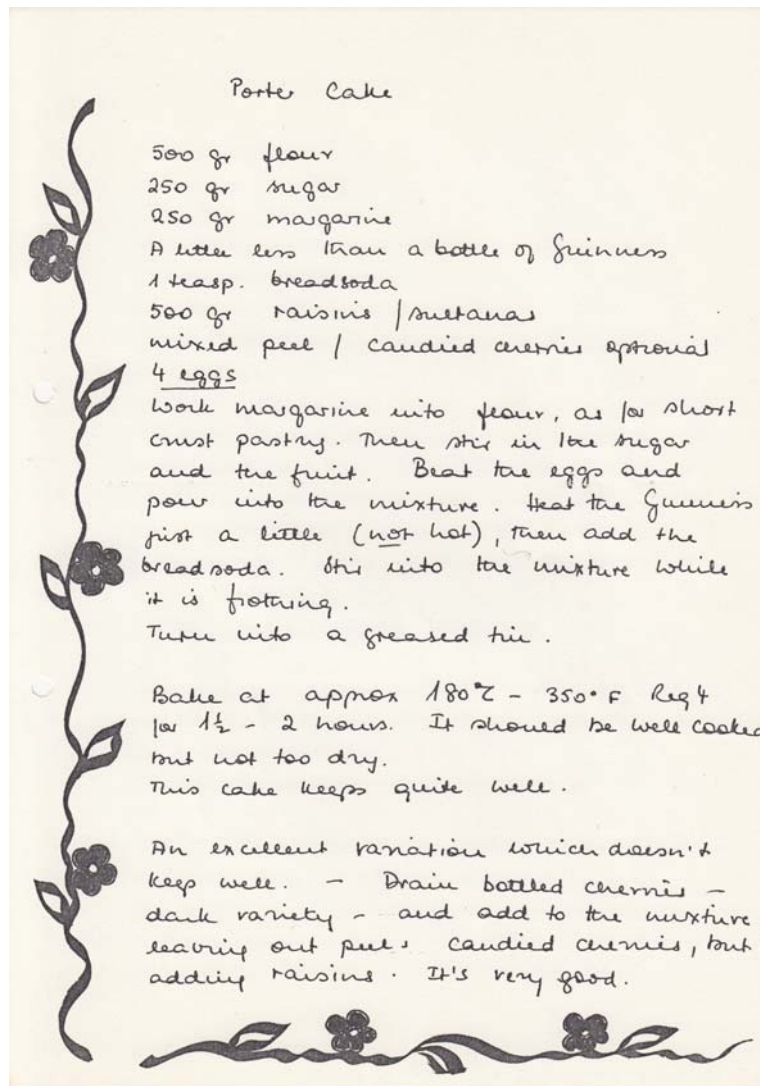 Porter Cake
500 gr flour
250 gr sugar
250 gr margarine
A little less than a bottle of Guinness
1 teasp. breadsoda
500 gr raisins / sultanas
mixed peel / candied cherries optional
4 eggs
Work margarine into flour, as for short
crust pastry. Then stir in the sugar
and the fruit. Beat the eggs and
pour into the mixture. Heat the Guinness
just a little (not hot), then add the
breadsoda. Stir into the mixture while
it is frothing.
Turn into a greased tin.
Bake at approx 180°C - 350°F Reg 4
for 1½ - 2 hours. It should be well cooked
but not too dry.
This cake keeps quite well.
An excellent variation which doesn't
keep well. - Drain bottled cherries -
dark variety - and add to the mixture
leaving out peel & candied cherries, but
adding raisins. It's very good.